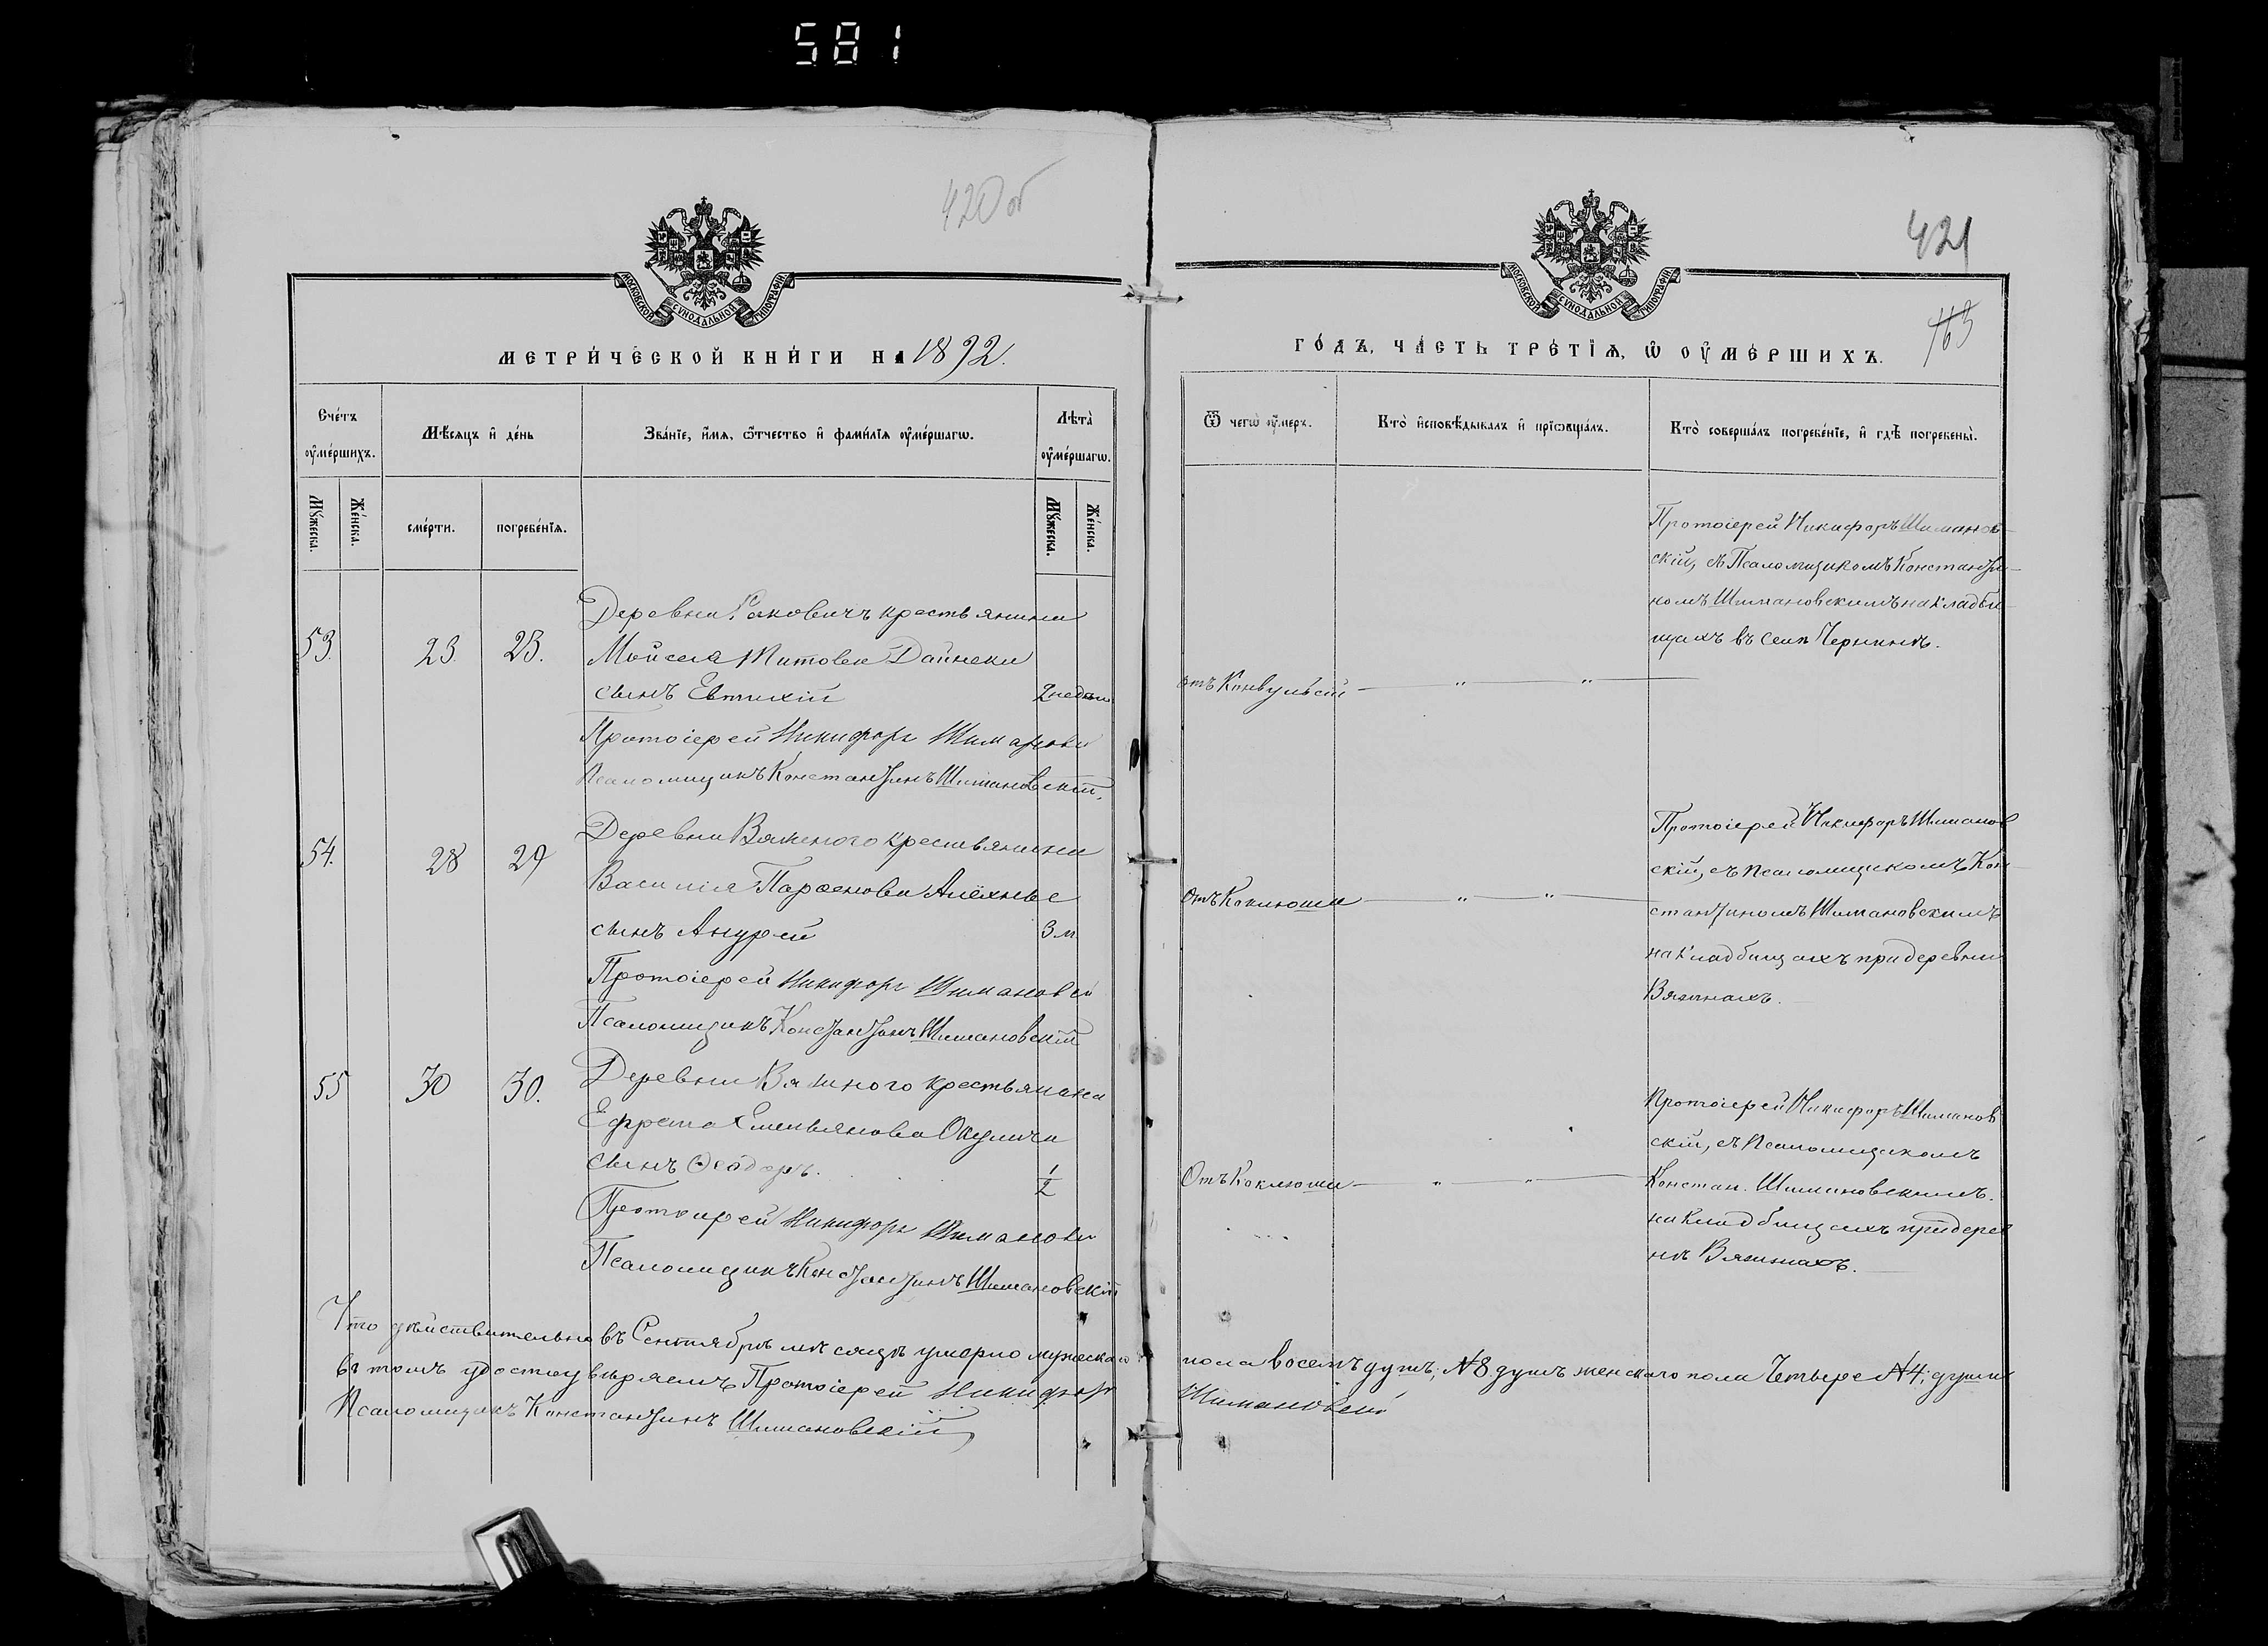 581
420 об
МОСКОВСКОЙ СУНОДАЛЬНОЙ ТИПОГРАФІИ
МЕТРИ́ЧЕСКОЙ КНИ́ГИ НА 1892.
Сче́тъ ᲂу҆ме́ршихъ.
Мѣ́сяцъ и҆ де́нь
Зва́нїе, и҆́мѧ, ѻ҆́тчество и҆ фами́лїѧ ᲂу҆ме́ршагѡ.
Лѣта̀ ᲂу҆ме́ршагѡ.
Мꙋ́жеска.
Же́нска.
сме́рти.
погребе́нїѧ.
Мꙋ́жеска.
Же́нска.
53.
23.
23.
Деревни Раковичъ крестьянина
Мойсея Титова Дайнеки
сынъ Евтихій
2 недѣли
Протоіерей Никифоръ Шимановскі
Псаломщикъ Константинъ Шимановскій.
54.
28
29
Деревни Вяжного крестьянина
Василія Парѳенова Алёхнъс
сынъ Андрей
3 м
Протоіерей Никифоръ Шимановскі
Псаломщикъ Константинъ Шимановскій
55
30
30.
Деревни Вяжного крестьянина
Ефрема Емельянова Окулича
сынъ Ѳеодоръ.
1/2
Протоіерей Никифоръ Шимановскі
Псаломщикъ Константинъ Шимановскій
Что дѣйствительно въ Сентябрѣ мѣсяцѣ умерло мужескаго
въ томъ удостовѣряемъ Протоіерей Никифоръ
Псаломщикъ Константинъ Шимановскій
421
163
МОСКОВСКОЙ СУНОДАЛЬНОЙ ТИПОГРАФІИ
ГО́ДЪ, ЧА́СТЬ ТРЕ́ТЇѦ, Ѡ҆ ОУ҆МЕ́РШИХЪ.
Ѿ чегѡ̀ ᲂу҆́меръ.
Кто̀ и҆сповѣ́дывалъ и҆ прїѡбща́лъ.
Кто̀ соверша́лъ погребе́нїе, и҆ гдѣ̀ погребены̀.
Протоіерей Никифоръ Шиманов-
скій, съ Псаломщикомъ Константи-
номъ Шимановскимъ на кладби-
щахъ въ селѣ Чернинѣ.
отъ Конвульсій — " — " —
Протоіерей Никифоръ Шиманов
скій, съ псаломщикомъ Кон-
стантиномъ Шимановскимъ
на кладбищахъ при деревни
Вяжнахъ.
Отъ Коклюша — " — " —
Протоіерей Никифоръ Шиманов
скій, съ Псаломщикомъ
Констан. Шимановскимъ.
на кладбищахъ при дерев
нѣ Вяжнахъ.
Отъ Коклюша — " — " —
пола восемъ душъ, №8 душъ женскаго пола Четыре №4, души
Шимановскі